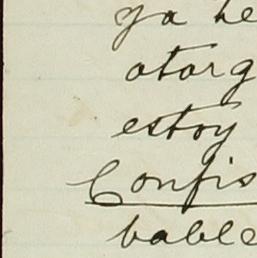 ya he
otorg
estoy
Confis
bable